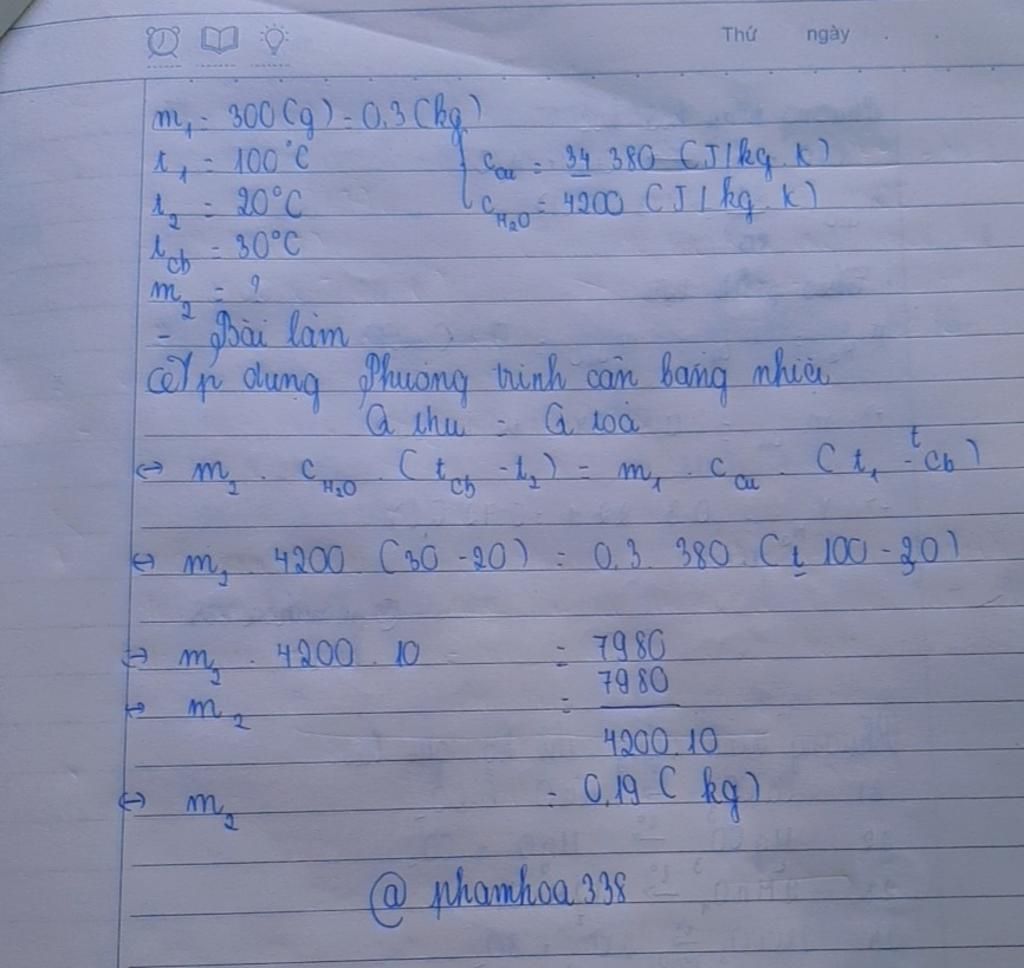 Thứ ngày
m₁ = 300(g) = 0,3(kg)
t₁ = 100°C
c_Cu = 380 (J/kg.K)
t₂ = 20°C
c_H₂O = 4200 (J/kg.K)
t_cb = 30°C
m₂ = ?
- Bài làm
Áp dụng Phương trình cân bằng nhiệt
Q thu = Q toả
⇔ m₂ . c_H₂O . (t_cb - t₂) = m₁ . c_Cu . (t₁ - t_cb)
⇔ m₂ . 4200 . (30 - 20) = 0,3 . 380 . (100 - 30)
⇔ m₂ . 4200 . 10 = 7980
⇔ m₂ = 7980
4200.10
⇔ m₂ = 0,19 (kg)
@ phamhoa338